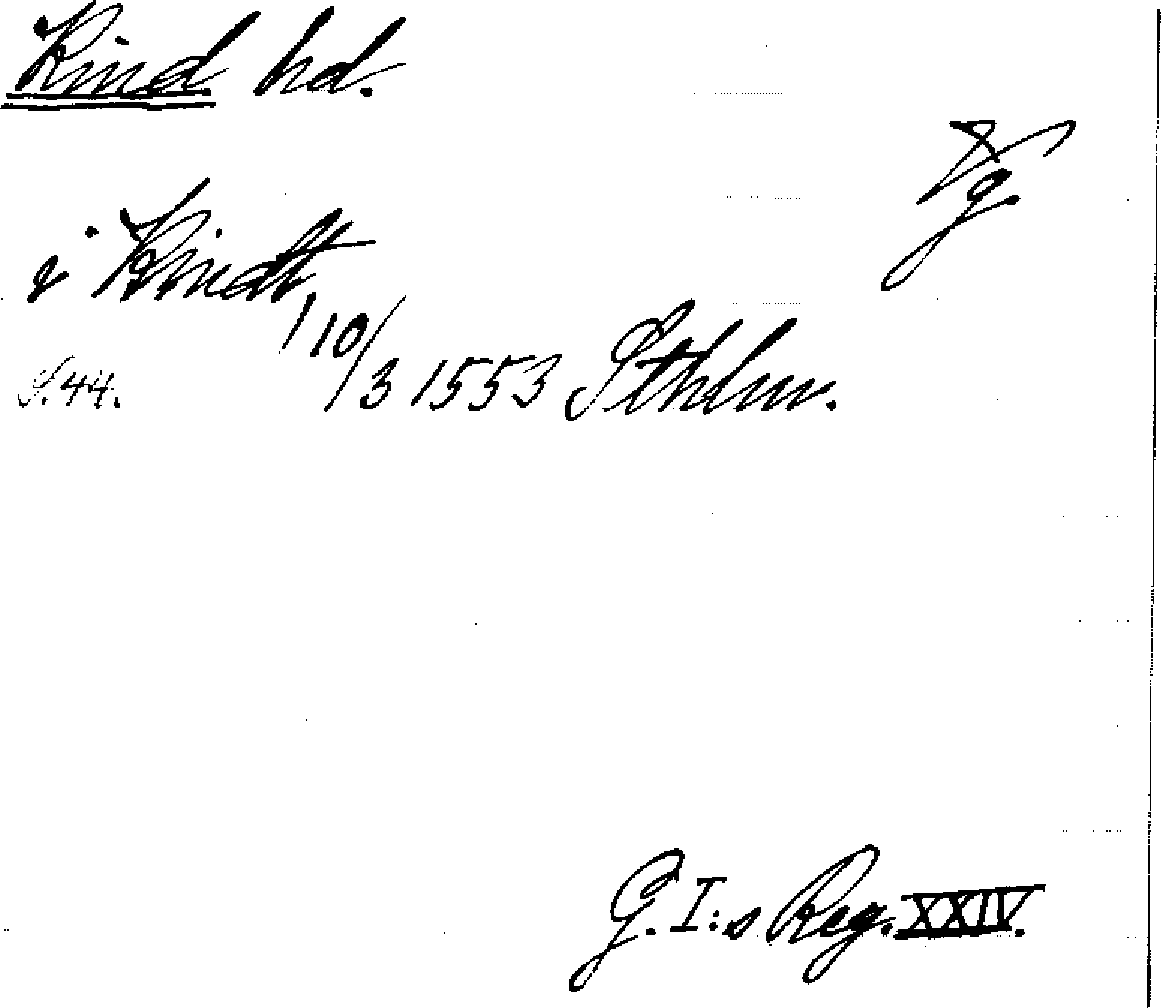 Kind hd.
Vg.
i Kindt
10/3 1553 Sthlm.
S. 44.
G. I:s Reg. XXIV.